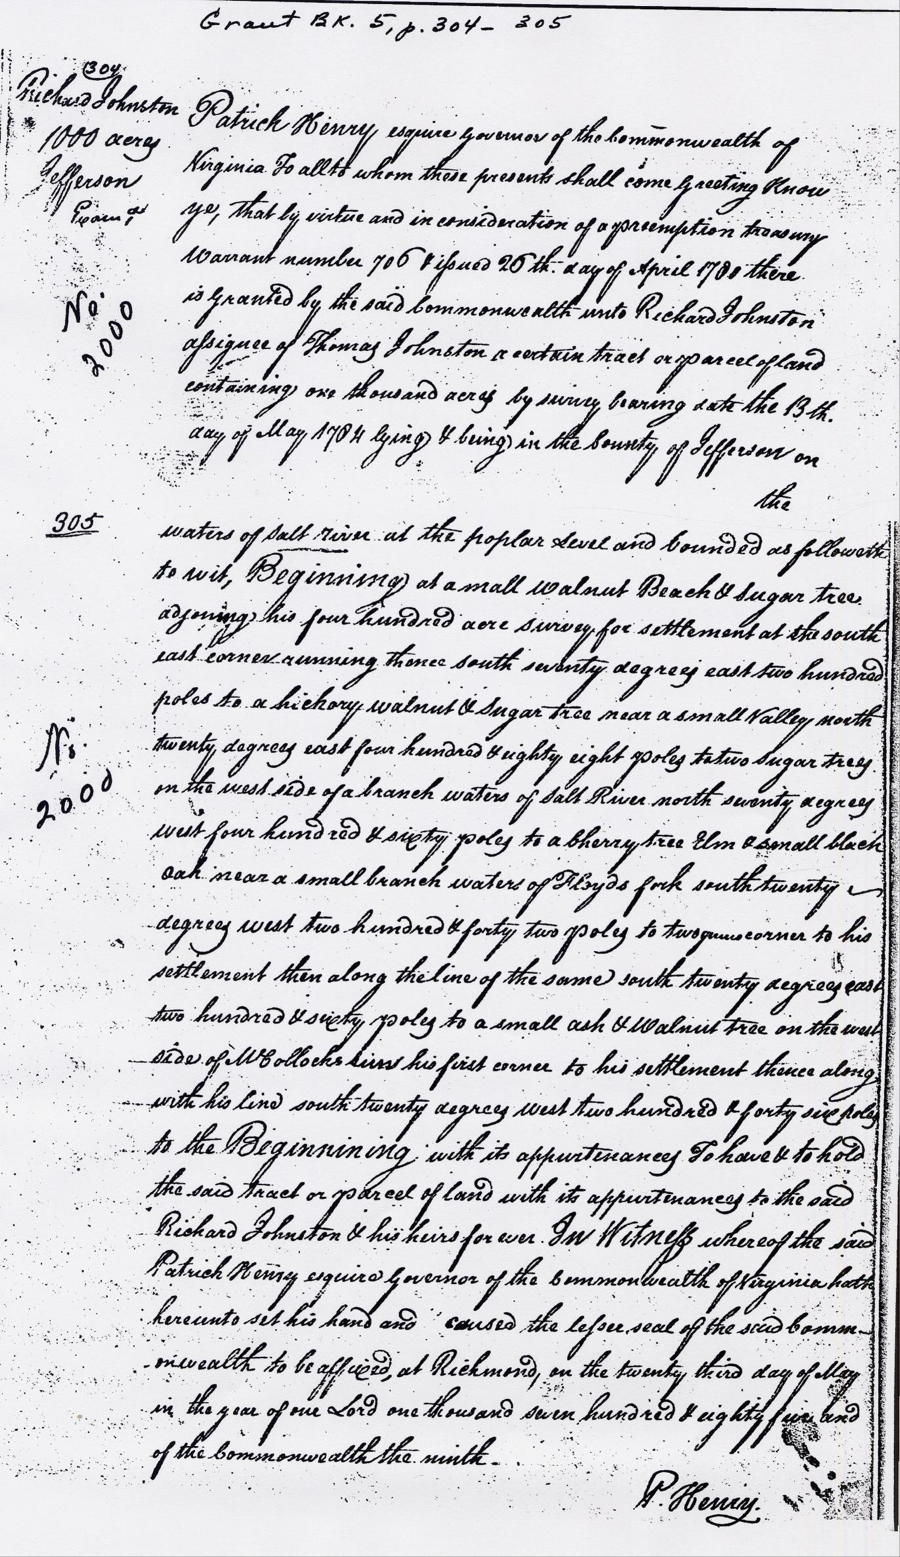 Grant BK. 5, p. 304 - 305
304
Richard Johnston
1000 acres
Jefferson
Exam'd
No.
2000
Patrick Henry esquire Governor of the Commonwealth of
Virginia To all to whom these presents shall come Greeting Know
ye, that by virtue and in consideration of a preemption treasury
Warrant number 706 & issued 26th. day of April 1780 there
is Granted by the said Commonwealth unto Richard Johnston
assignee of Thomas Johnston a certain tract or parcel of land
containing one thousand acres by survey bearing date the 13th.
day of May 1784 lying & being in the County of Jefferson on
the
305
waters of Salt river at the poplar Level and bounded as followeth
to wit, Beginning at a mall Walnut Beach & Sugar tree
adjoning his four hundred acre survey for settlement at the south
east corner running thence south seventy degrees east two hundred
poles to a hickory walnut & Sugar tree near a small Valley north
twenty degrees east four hundred & eighty eight poles to two Sugar trees
on the west side of a branch waters of Salt River north seventy degrees
west four hundred & sixty poles to a Cherry tree Elm & small black
Oak near a small branch waters of Floyds fork south twenty
degrees west two hundred & forty two poles to two corner to his
settlement then along the line of the same south twenty degrees east
two hundred & sixty poles to a small ash & Walnut tree on the west
side of McCollocks his first corner to his settlement thence along
with his line south twenty degrees west two hundred & forty six poles
to the Beginnining with its appurtenances To have & to hold
the said tract or parcel of land with its appurtenances to the said
Richard Johnston & his heirs for ever. In Witness whereof the said
Patrick Henry esquire Governor of the Commonwealth of Virginia hath
hereunto set his hand and caused the lesser seal of the said Comm-
onwealth to be affixed, at Richmond, on the twenty third day of May
in the year of our Lord one thousand seven hundred & eighty five and
of the Commonwealth the ninth.
P. Henry.
No.
2000